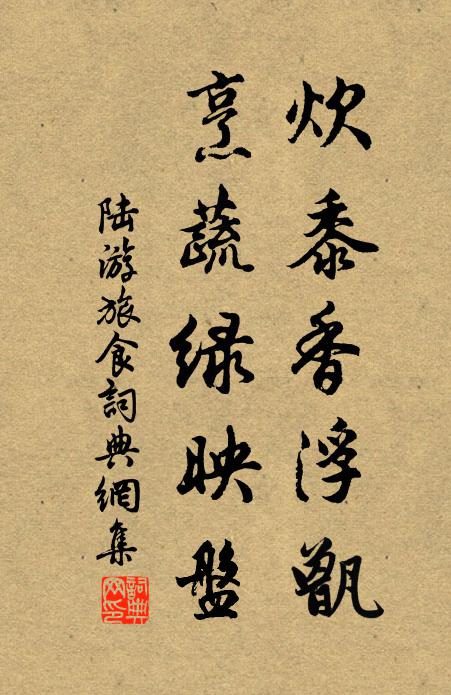 炊黍香浮甑
烹蔬緑映盤
陆游旅食詞典網集
詞典网印